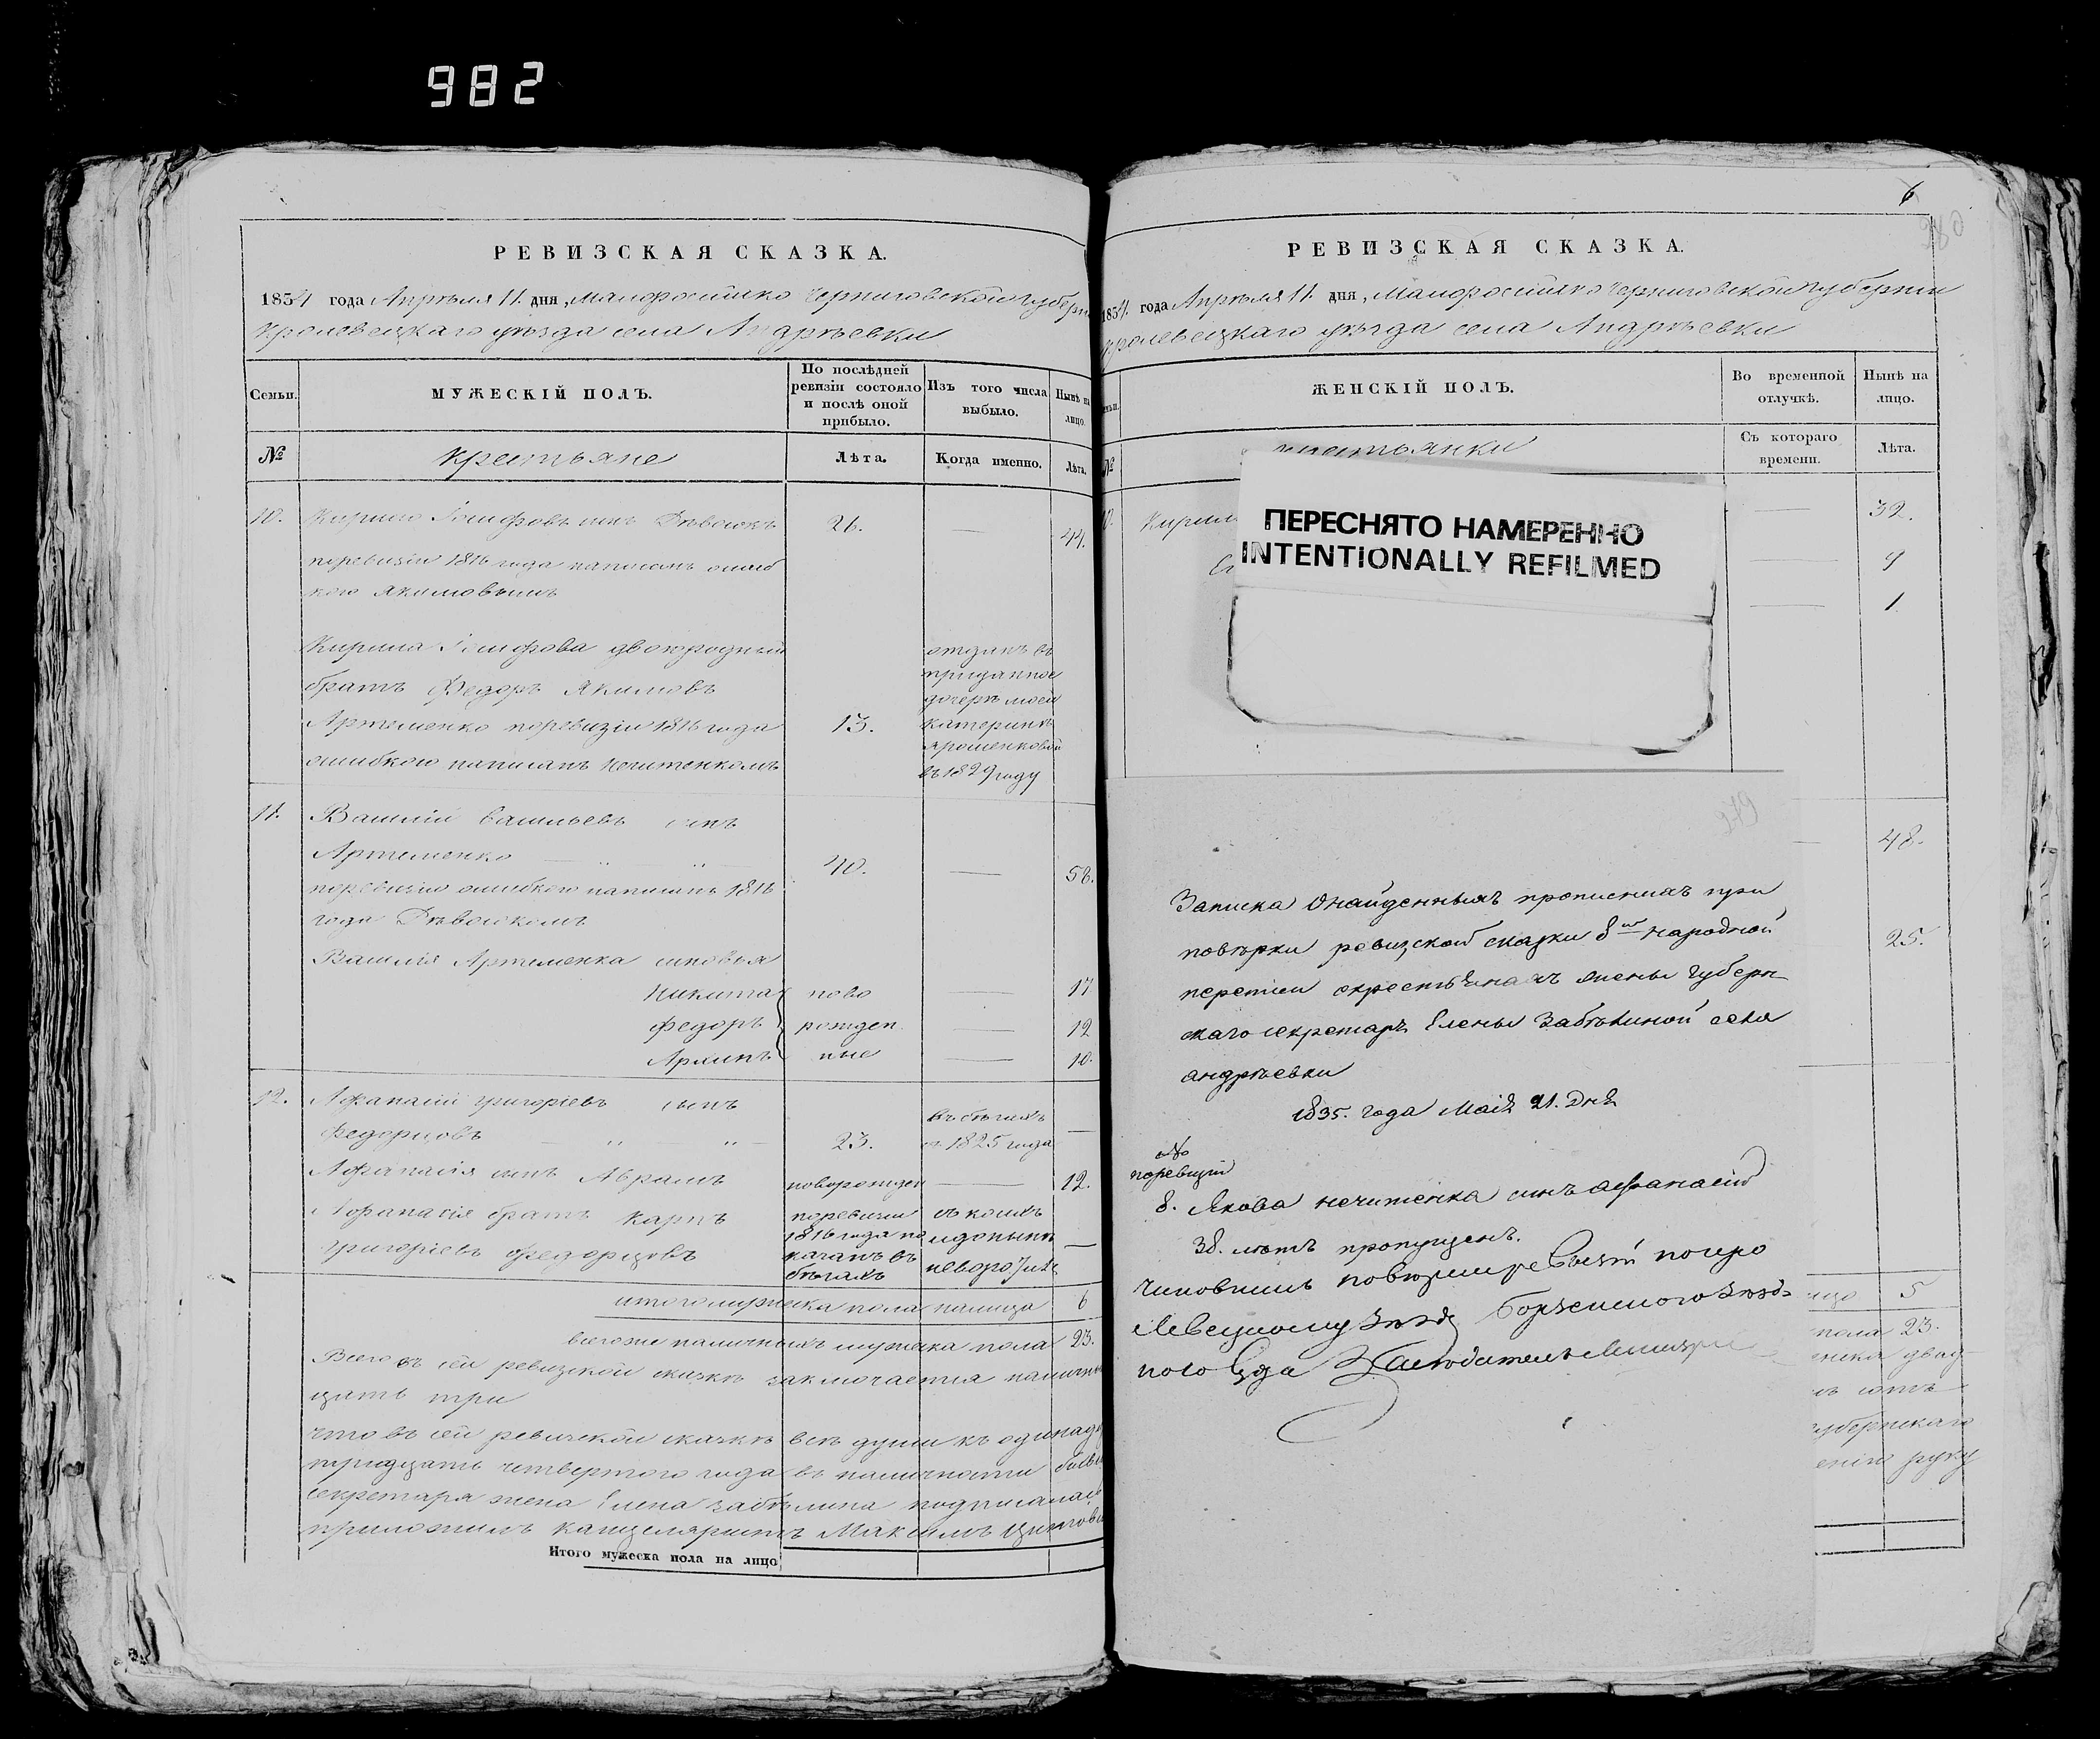 982
РЕВИЗСКАЯ СКАЗКА.
1834 года Апреля 11. дня, Малороссійско Черниговской Губерн
Кролевецкаго уѣзда села Андрѣевки
Семьи.
МУЖЕСКІЙ ПОЛЪ.
По послѣдней ревизіи состояло и послѣ оной прибыло.
Изъ того числа выбыло.
Нынѣ на лицо.
№
Крестьяне
Лѣта.
Когда именно.
Лѣта.
10.
Кирило Іосифовъ сынъ
26.
44.
поревизіи 1816 года написанъ ошиб
кою Якимовымъ
Кирила Іосифова двоюродный
братъ Федоръ Якимовъ
Артеменко поревизіи 1816 года
ошибкою написанъ Нечитенкомъ
13.
отданъ въ
приданное
дочерѣ моей
Катеринѣ
Ярошенковой
въ 1829 году
11.
Василій Васильевъ сынъ
Артеменко
40.
58.
поревизіи ошибкою написанъ 1816
года
Василія Артеменка сыновья
Никита
ново
17
Федоръ
рожден
12
Архипъ
ные
10.
12.
Афанасій Григоріевъ сынъ
Федорцовъ
23.
въ бѣгахъ
съ 1825 года
Афанасія сынъ Абрамъ
новорожден
12.
Афанасія братъ Карпъ
Григоріевъ Федорцовъ
поревизіи
1816 года по
казанъ въ
бѣгахъ
съ коихъ
идонынѣ
Итого мужеска пола налицо
6
всего же наличныхъ мужеска пола
23.
Всего въ сей ревизской сказкѣ заключается налич
цать три
что въ сей ревизской сказкѣ всѣ души къ одинад
тридцать четвертого года въ наличности
секретаря жена Елена Забѣлина подписалась
приложилъ канцеляристъ Максимъ
Итого мужеска пола на лицо
6
280
РЕВИЗСКАЯ СКАЗКА.
1834. года Апреля 11. дня, Малороссійско Черниговской Губерніи
Кролевецкаго уѣзда села Андрѣевки
ЖЕНСКІЙ ПОЛЪ.
Во временной отлучкѣ.
Нынѣ на лицо.
№
Съ котораго времени.
Лѣта.
32.
9
1
ПЕРЕСНЯТО НАМЕРЕННО
INTENTIONALLY REFILMED
48.
25.
279
Записка Онайденныхъ прописныхъ при
повѣрки ревизской сказки 8ой народной
переписи окрестьянахъ жены Губерн
скаго секретаръ Елены Забѣлиной села
андрѣевки
1835. года Маія 21. Дня
№
поревизіи
8. Якова нечитенка сынъ афанасій
38. лѣтъ пропущенъ.
5
пола 23.
двад
Губернскаго
руку